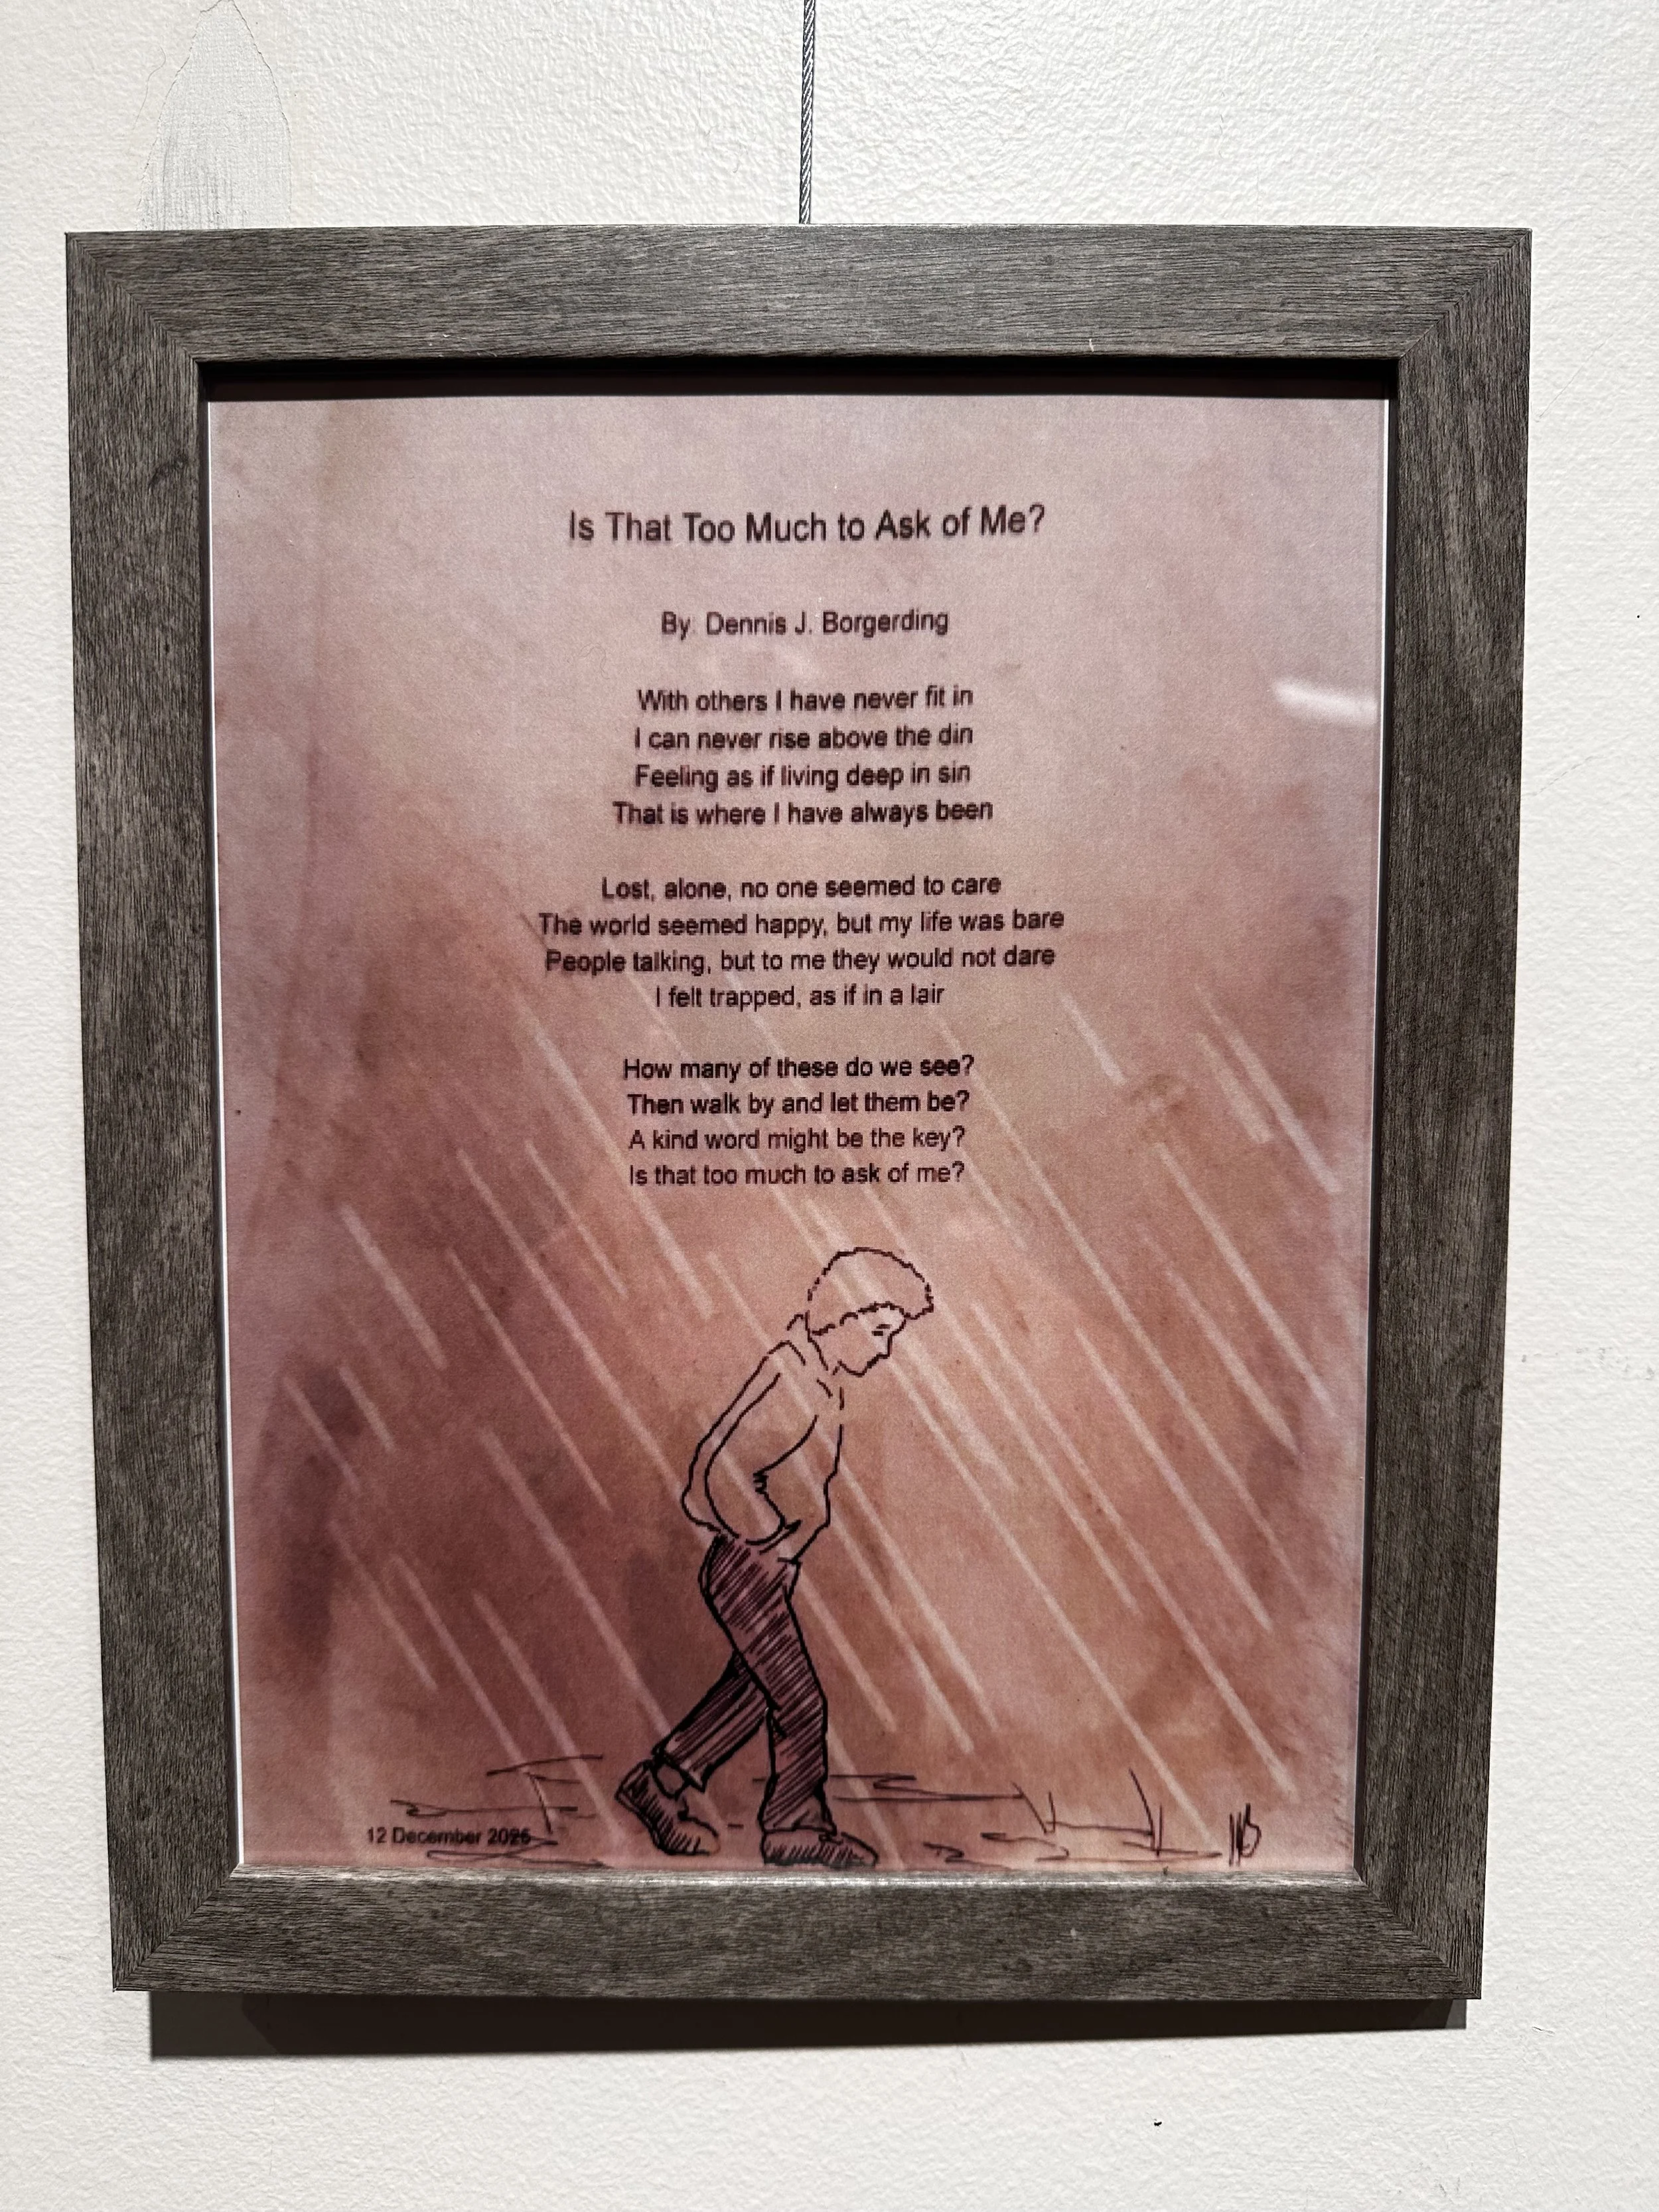 Is That Too Much to Ask of Me?
By: Dennis J. Borgerding
With others I have never fit in
I can never rise above the din
Feeling as if living deep in sin
That is where I have always been
Lost, alone, no one seemed to care
The world seemed happy, but my life was bare
People talking, but to me they would not dare
I felt trapped, as if in a lair
How many of these do we see?
Then walk by and let them be?
A kind word might be the key?
Is that too much to ask of me?
12 December